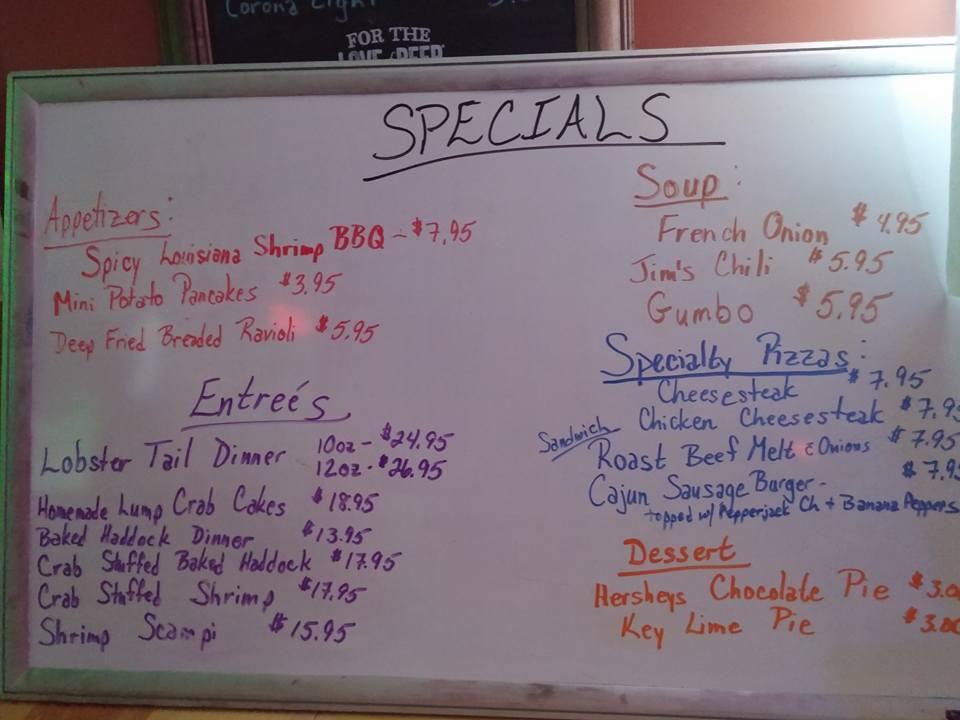 Corona Light
FOR THE
LOVE of BEER
SPECIALS
Appetizers:
Spicy Louisiana Shrimp BBQ - $7.95
Mini Potato Pancakes $3.95
Deep Fried Breaded Ravioli $5.95
Entreés
Lobster Tail Dinner 10oz - $24.95
12oz - $26.95
Homemade Lump Crab Cakes $18.95
Baked Haddock Dinner $13.95
Crab Stuffed Baked Haddock $17.95
Crab Stuffed Shrimp $17.95
Shrimp Scampi $15.95
Soup:
French Onion $4.95
Jim's Chili $5.95
Gumbo $5.95
Specialty Pizzas:
Cheesesteak $7.95
Chicken Cheesesteak $7.95
Sandwich Roast Beef Melt c Onions $7.95
Cajun Sausage Burger - $7.95
topped w/ Pepperjack Ch + Banana Peppers
Dessert
Hersheys Chocolate Pie $3.00
Key Lime Pie $3.00